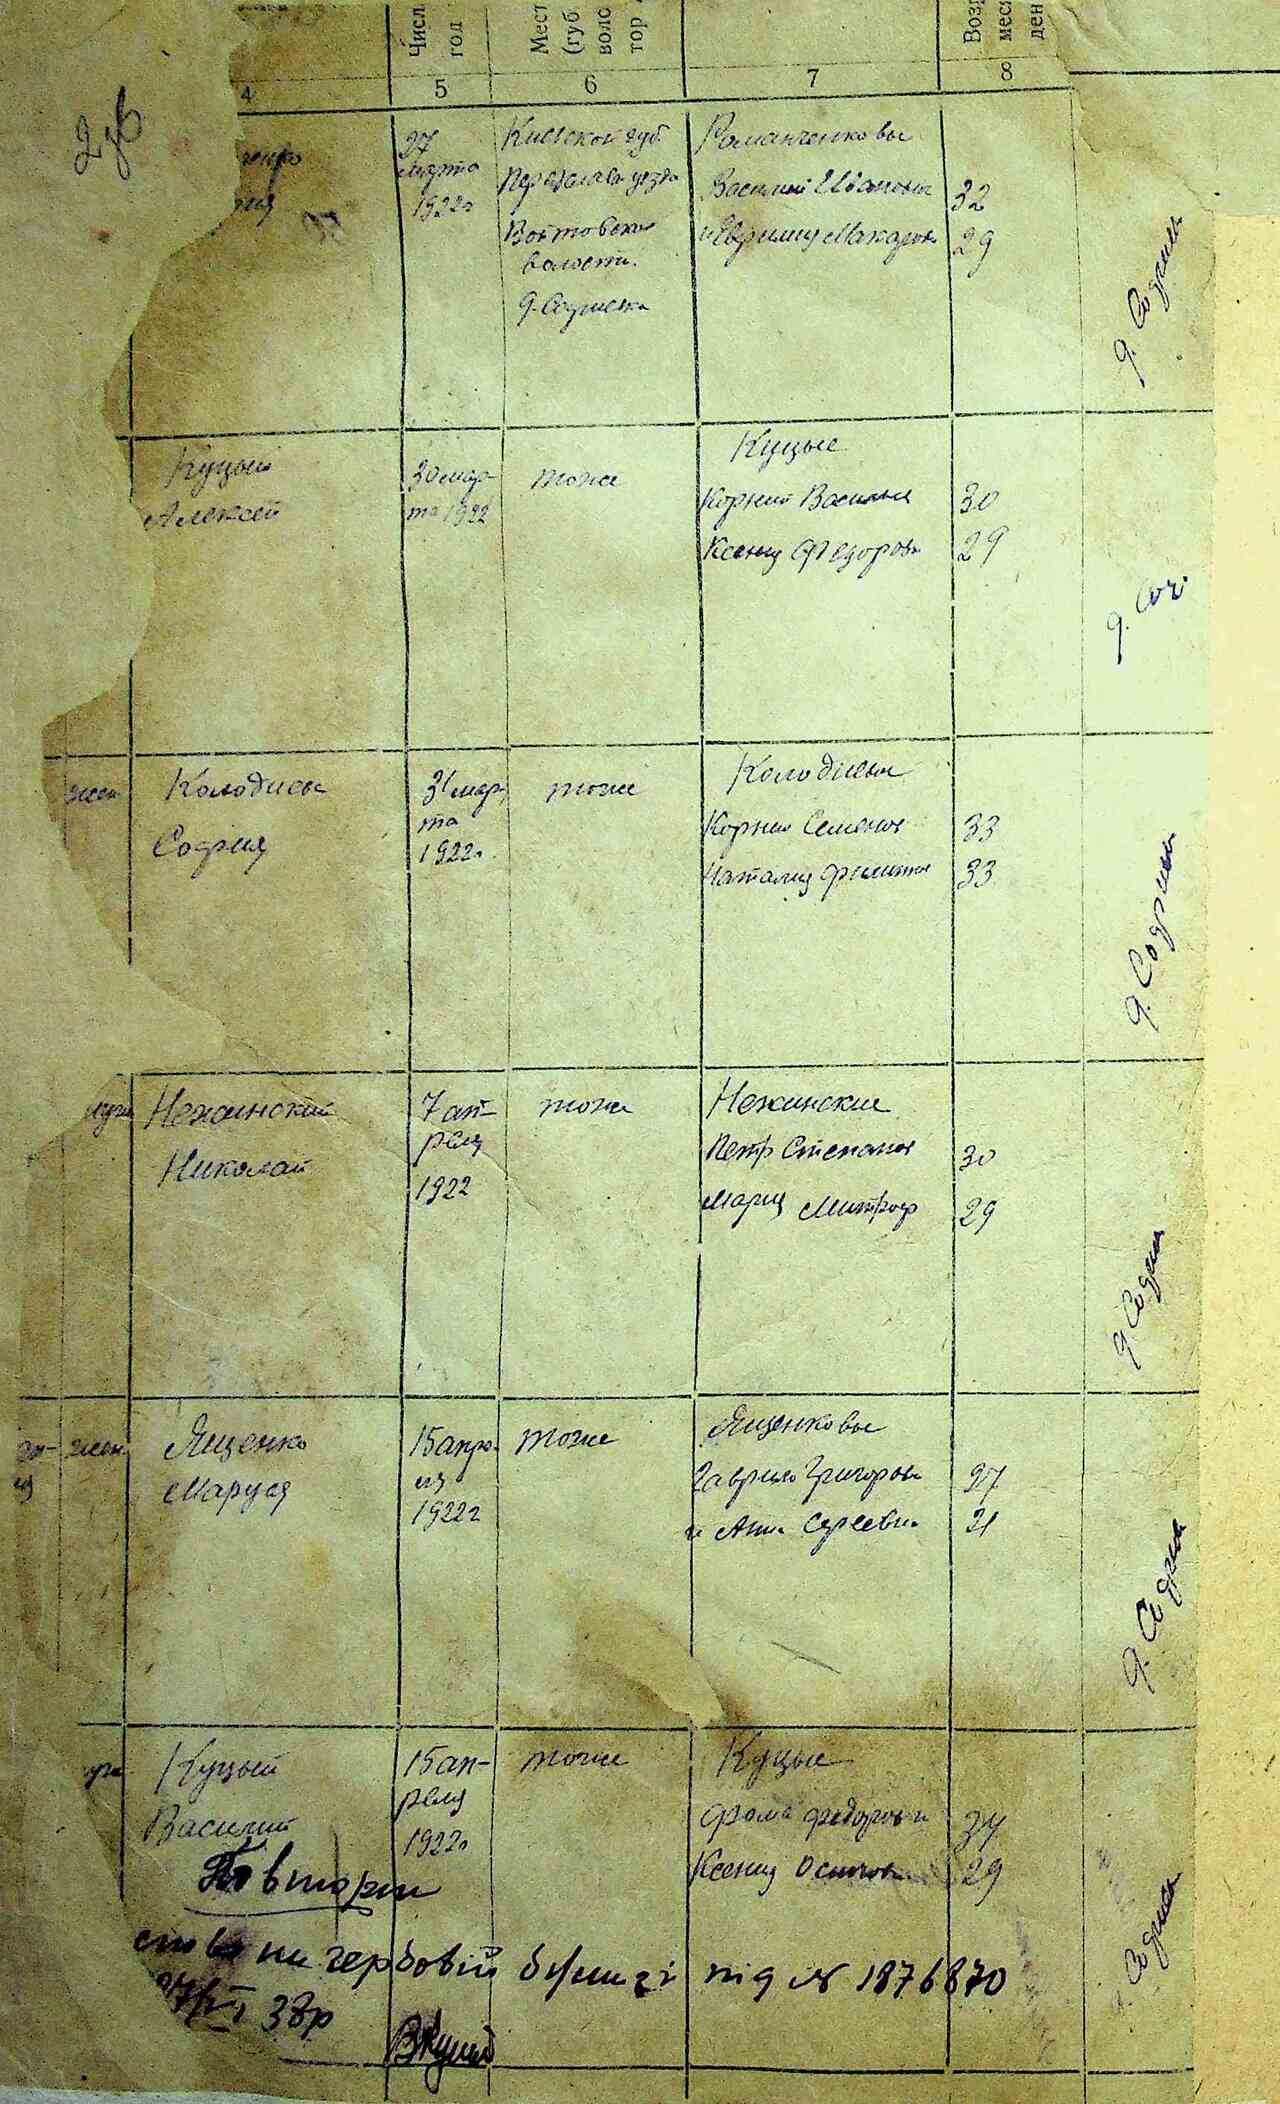 Числ
год
Мест
(губ.
волс
тор
Возр
меся
ден
4
5
6
7
8
27
марта
1922г
Киевской губ.
Переяслав уезда
Войтовской
волости.
Романченковы
Василий Иванович
и Евфимия Макаров
32
29
Куцый
Алексей
30 мар-
та 1922
тоже
Куцые
Корний Василье
Ксения Федоровн
30
29
жен
Колодиева
София
31 мар-
та
1922г
тоже
Колодиевы
Корний Семенов
Наталия Филипов
33
33
Нежинский
Николай
7 ап-
реля
1922
тоже
Нежинские
Петр Степанов
Мария Митроф
30
29
жен
Ященко
Маруся
15 апре-
ля
1922г
тоже
Ященковы
Гаврило Григоров
и Анна Сергеевн
27
21
Куцый
Василий
15 ап-
реля
1922г
тоже
Куцые
Фома Федоров и
Ксения Осипов
34
29
Повторн
ство на гербовій бумазі під № 1876870
38р